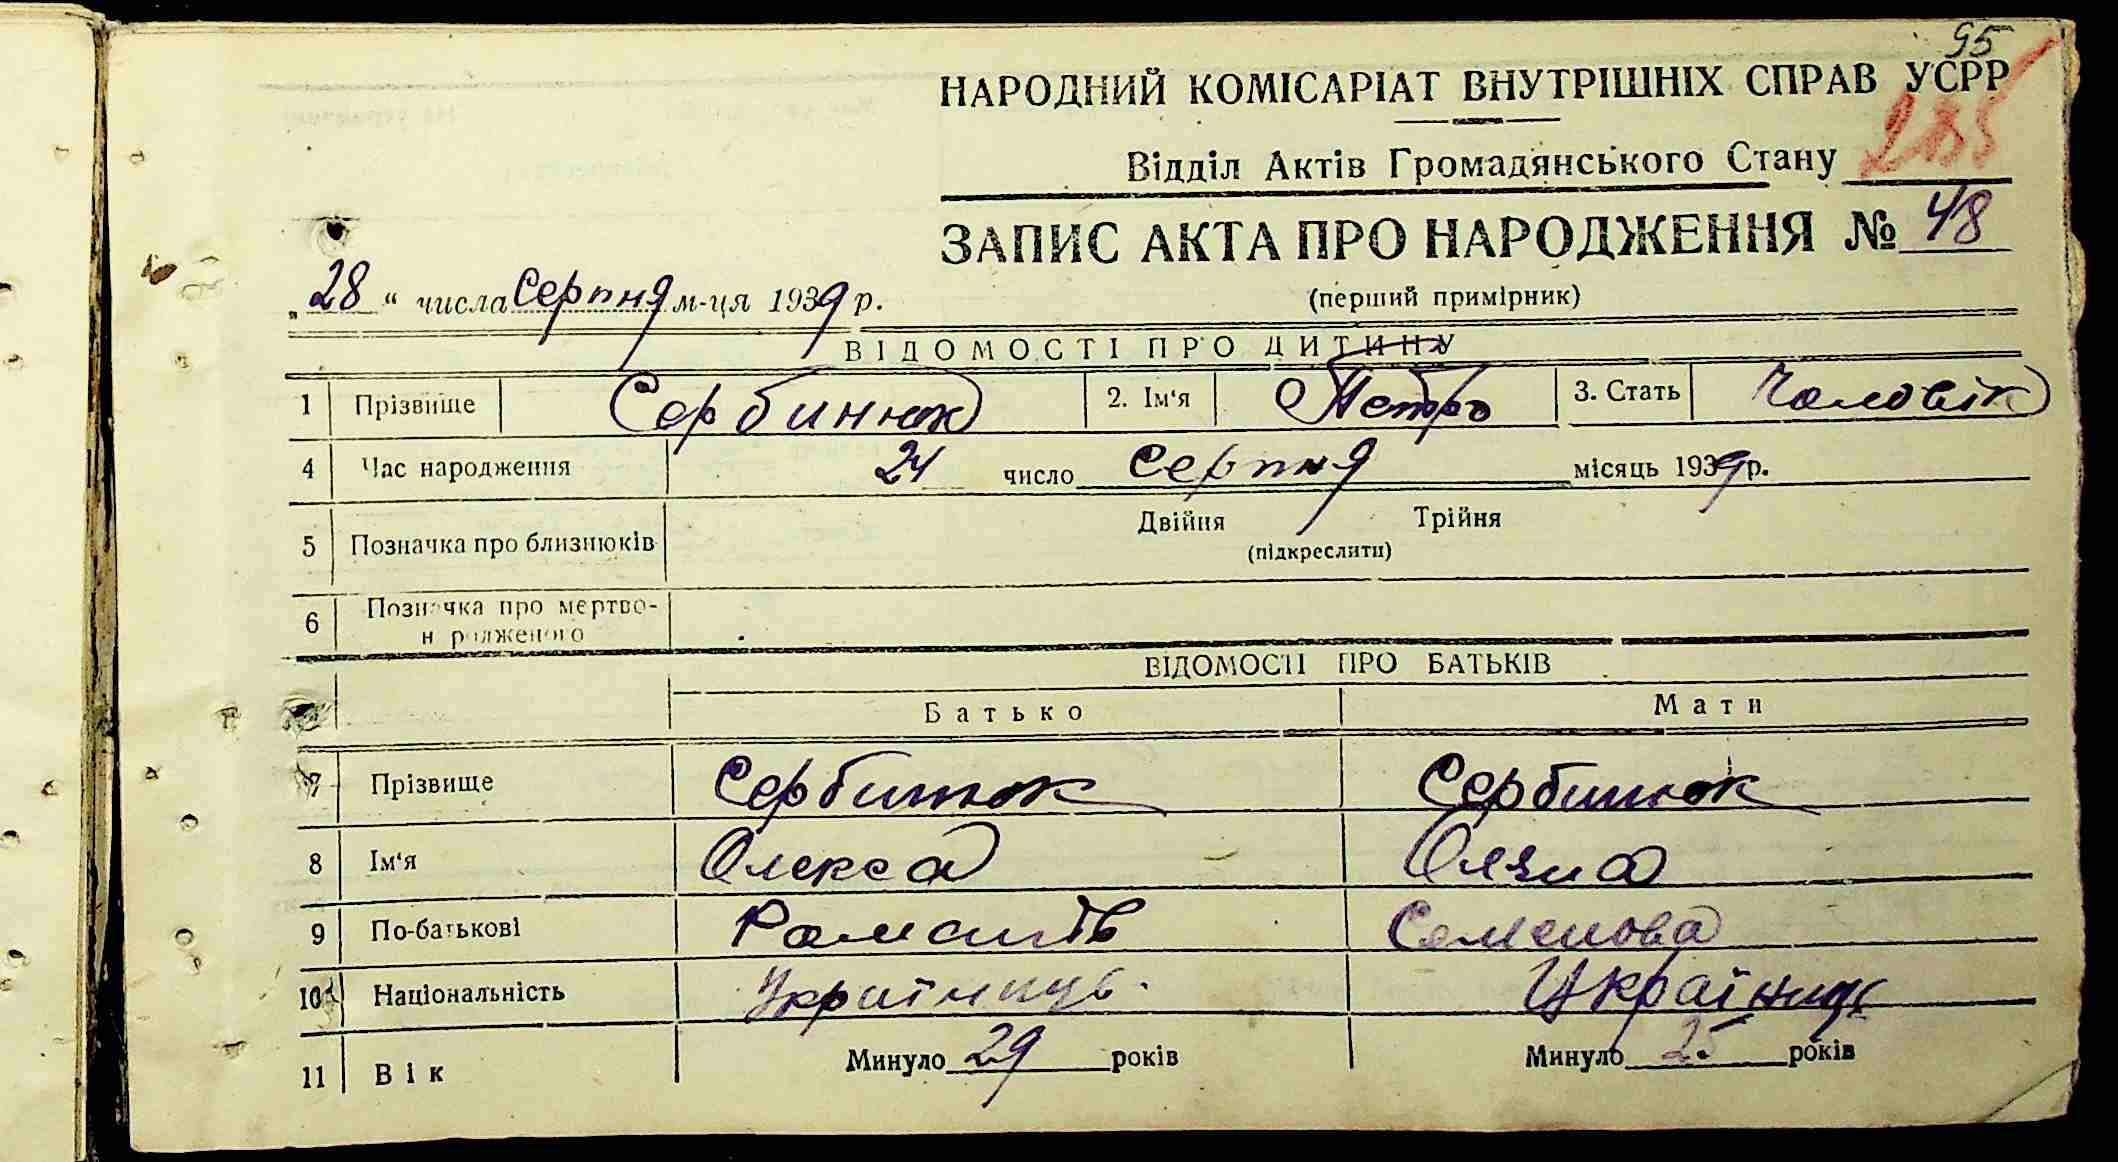 95
НАРОДНИЙ КОМІСАРІАТ ВНУТРІШНІХ СПРАВ УСРР
285
Відділ Актів Громадянського Стану
ЗАПИС АКТА ПРО НАРОДЖЕННЯ № 48
„28“ числа Серпня м-ця 1939 р.
(перший примірник)
ВІДОМОСТІ ПРО ДИТИНУ
1 Прізвище Сербинюк 2. Ім‘я Петро 3. Стать Чоловік
4 Час народження 24 число Серпня місяць 1939 р.
5 Позначка про близнюків Двійня Трійня
(підкреслити)
6 Позначка про мертво-
н родженого
ВІДОМОСТІ ПРО БАТЬКІВ
Батько Мати
7 Прізвище Сербинюк Сербинюк
8 Ім‘я Олекса Оляна
9 По-батькові Романів Семенова
10 Національність Українць Українка
11 Вік Минуло 29 років Минуло 25 років